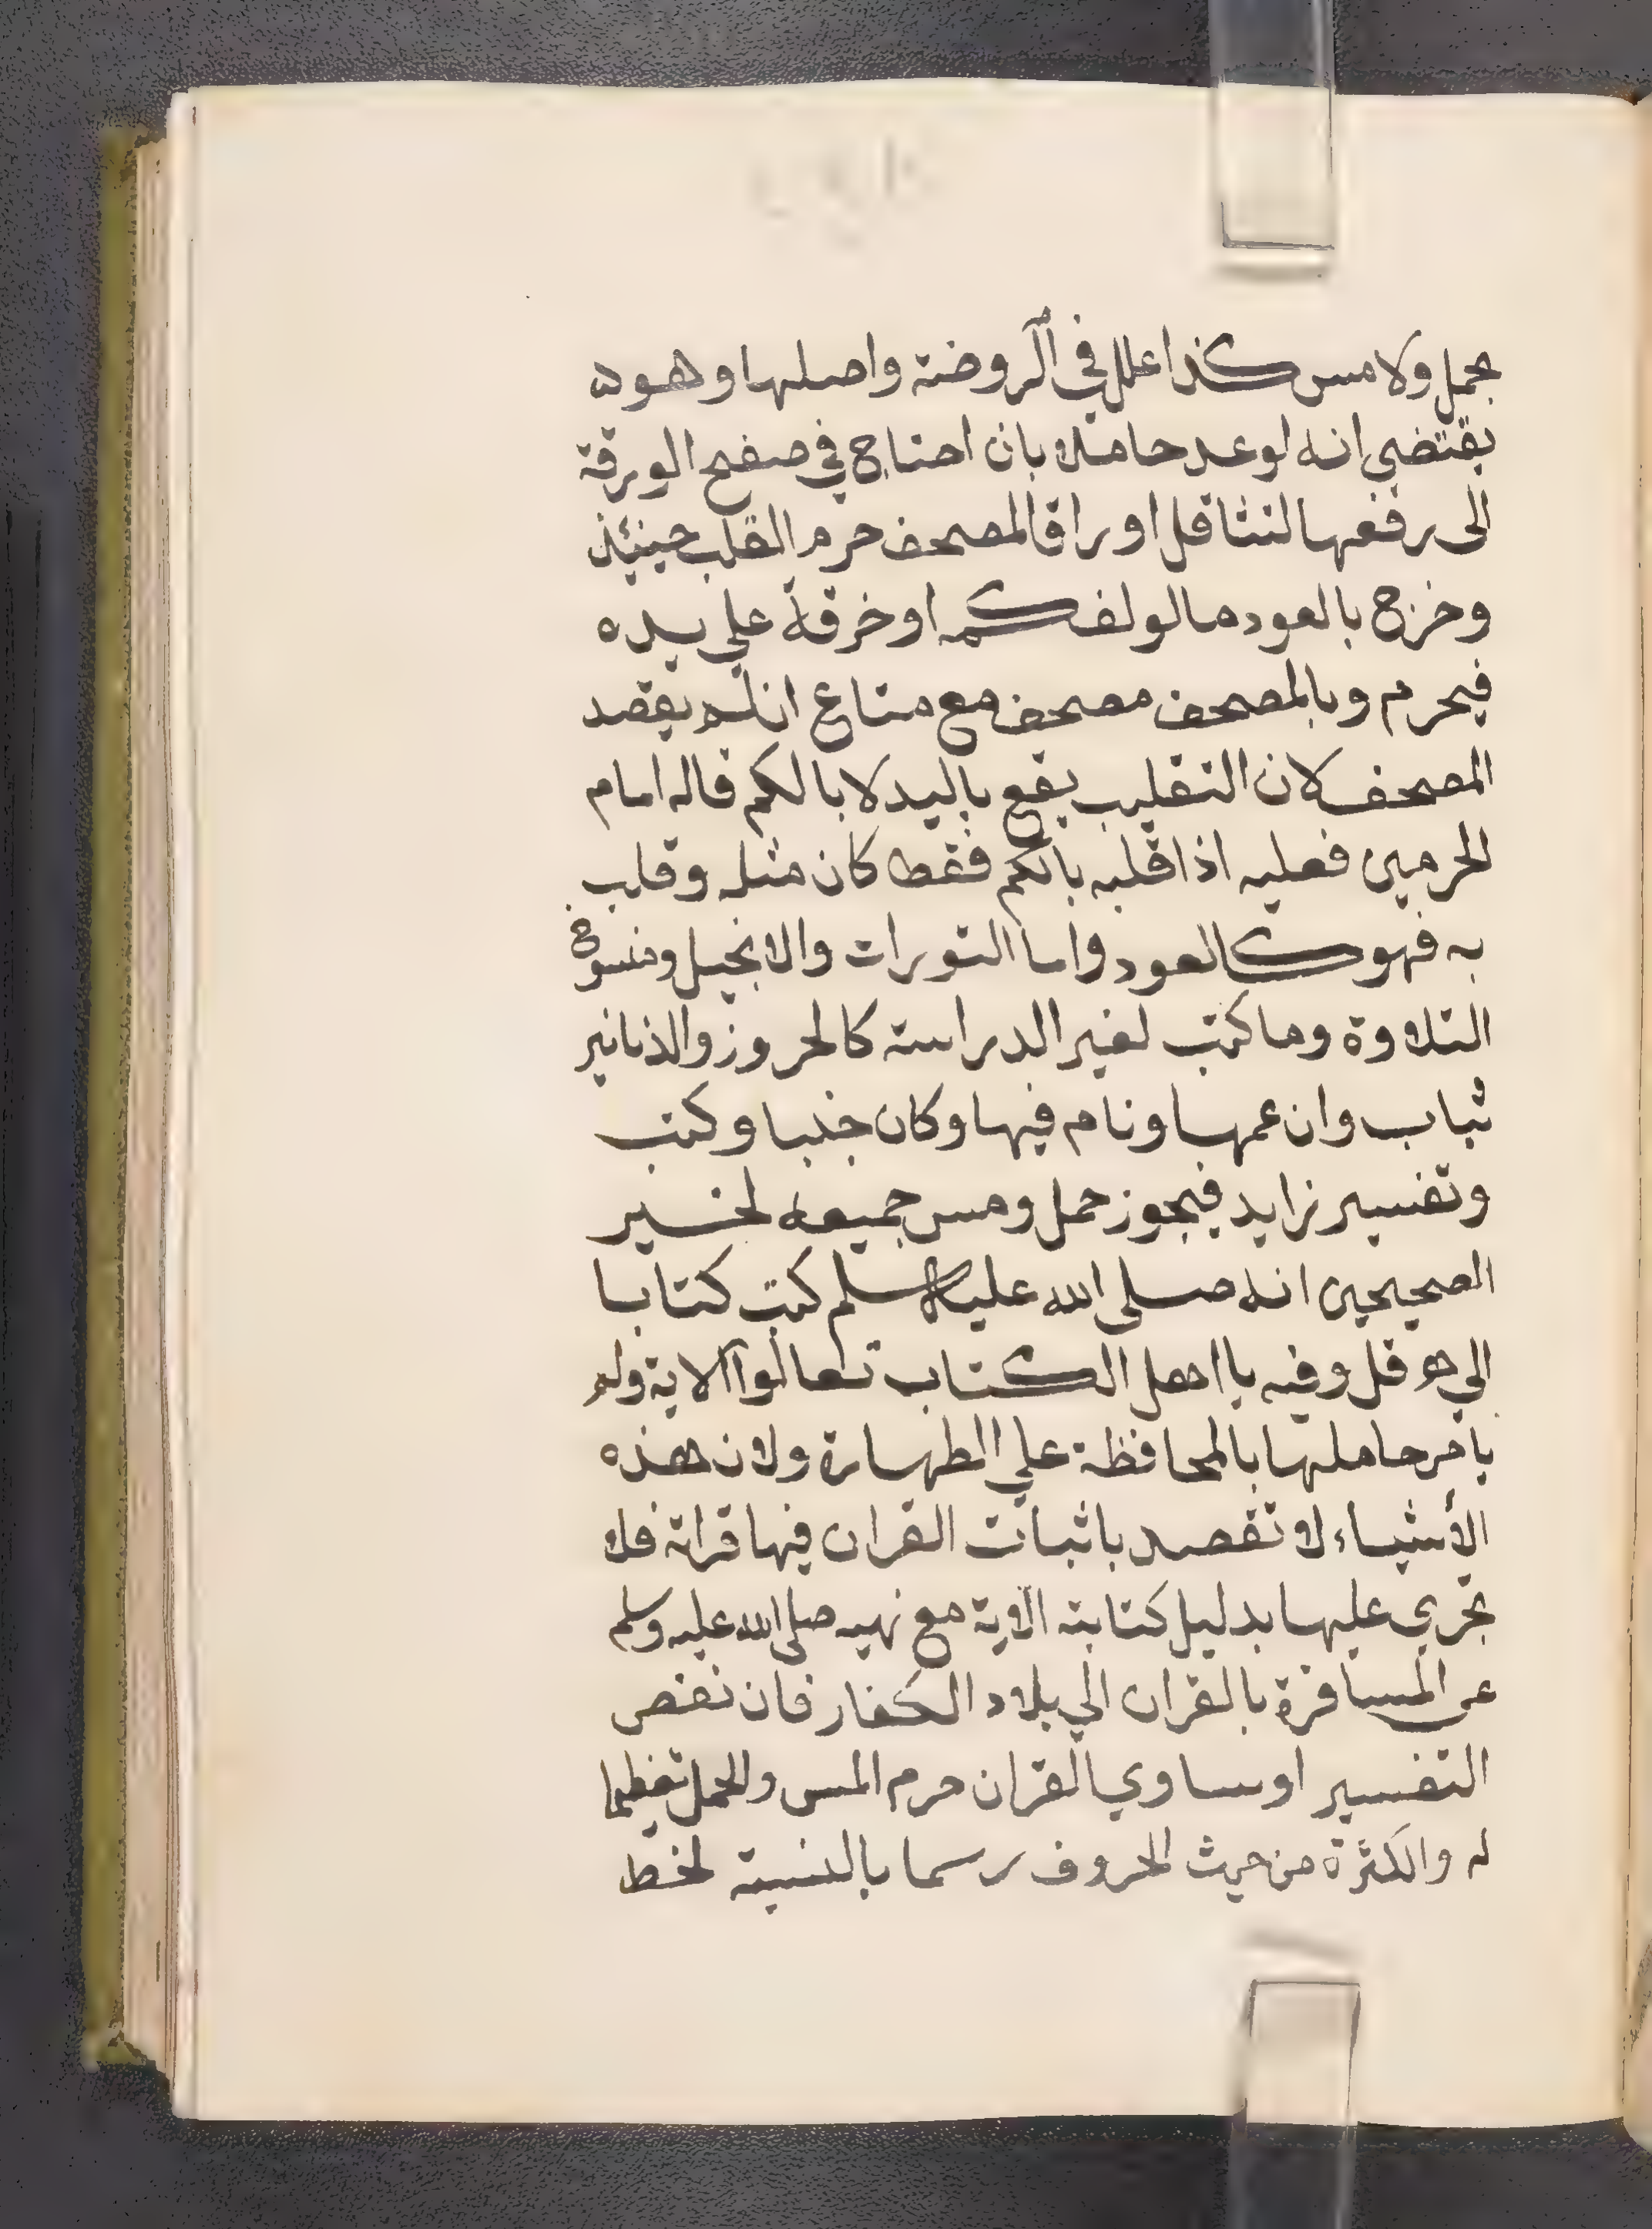 حمل ولا مس كذا علل في الروضة واصلها وهو
يقتضي انه لو عد حاملا بان احتاج في صفح الورقة
الى رفعها لتثاقل اوراق المصحف حرم القلب حينئذ
وخرج بالعود ما لو لف كمه او خرقة علي يده
فيحرم وبالمصحف مصحف مع متاع ان لم يقصد
المصحف لان التقليب يقع باليد لا بالكم قاله امام
الحرمين فعليه اذا قلبه بالكم فقط كان فتله وقلب
به فهو كالعود واما التورات والانجيل ومنسوخ
التلاوة وما كتب لغير الدراسة كالحروز والدنانير
ثياب وان عمها ونام فيها وكان جنبا وكتب
وتفسير زايد فيجوز حمل ومس جميعه لخبر
الصحيحين انه صلى الله عليه وسلم كتب كتابا
الي هرقل وفيه يا اهل الكتاب تعالوا الاية ولم
يامر حاملها بالمحافظة علي الطهارة ولان هذه
الأشياء لا تقصد باثبات القران فيها قراته فلا
تجري عليها بدليل كتابته الاية مع نهيه صلى الله عليه وسلم
عن المسافرة بالقران الي بلاد الكفار فان نقص
التفسير او ساوي القران حرم المس والحمل تعظيما
له والكثرة من حيث الحروف رسما بالنسبة لخط